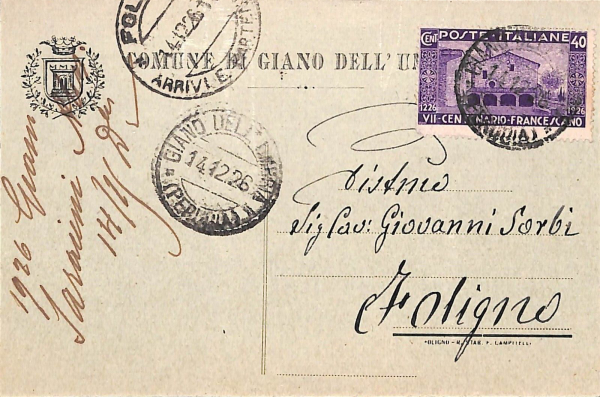 COMUNE DI GIANO DELL'UM
FOL
14.12.26
ARRIVI E PARTEN
CENT POSTE ITALIANE 40
1226 1926
VII-CENTENARIO-FRANCESCANO
GIANO DELL'UMBRIA
14.12.26
(PERUGIA)
Sig Cav: Giovanni Sorbi
Foligno
FOLIGNO - R. STAB. F. CAMPITELLI
1926